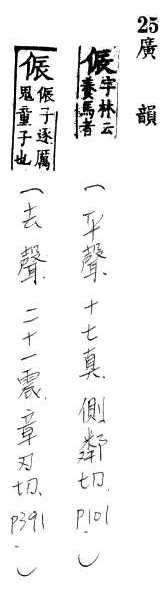 25廣韻
侲字林云養馬者
(平聲.十七真.側鄰切.P101.)
侲侲子逐厲鬼童子也
(去聲.二十一震.章刃切.P391.)